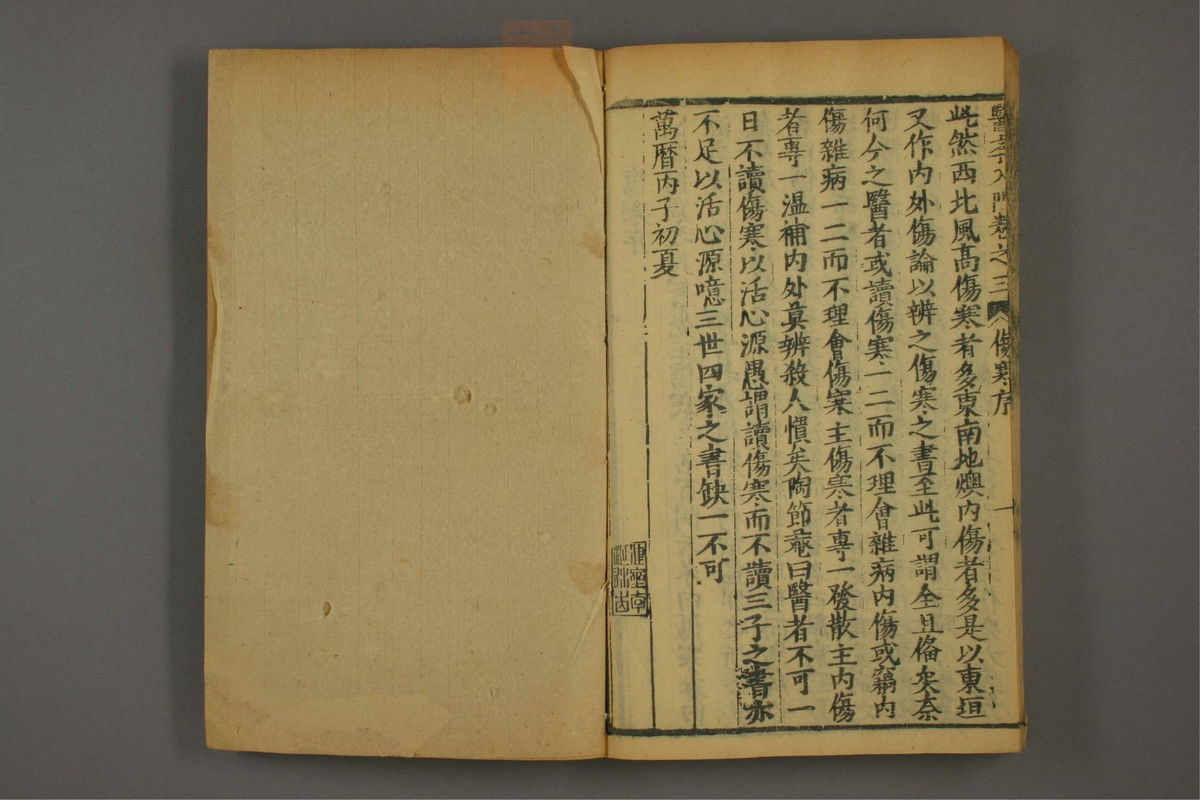 醫學入門卷之三 傷寒序 一
此然西北風高傷寒者多東南地燠内傷者多是以東垣
又作内外傷論以辨之傷寒之書至此可謂全且俻矣柰
何今之醫者或讀傷寒一二而不理會雜病内傷或竊内
傷雜病一二而不理會傷寒主傷寒者專一發散主内傷
者專一温補内外莫辨殺人慣矣陶節菴曰醫者不可一
日不讀傷寒以活心源愚謂讀傷寒而不讀三子之書亦
不足以活心源噫三世四家之書缺一不可
萬曆丙子初夏